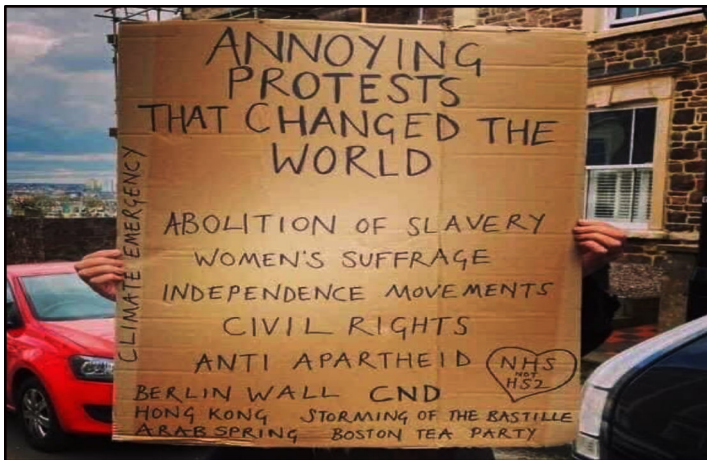 ANNOYING
PROTESTS
THAT CHANGED THE
WORLD
CLIMATE EMERGENCY
ABOLITION OF SLAVERY
WOMEN'S SUFFRAGE
INDEPENDENCE MOVEMENTS
CIVIL RIGHTS
ANTI APARTHEID
NHS
NOT
HS2
BERLIN WALL CND
HONG KONG STORMING OF THE BASTILLE
ARAB SPRING BOSTON TEA PARTY